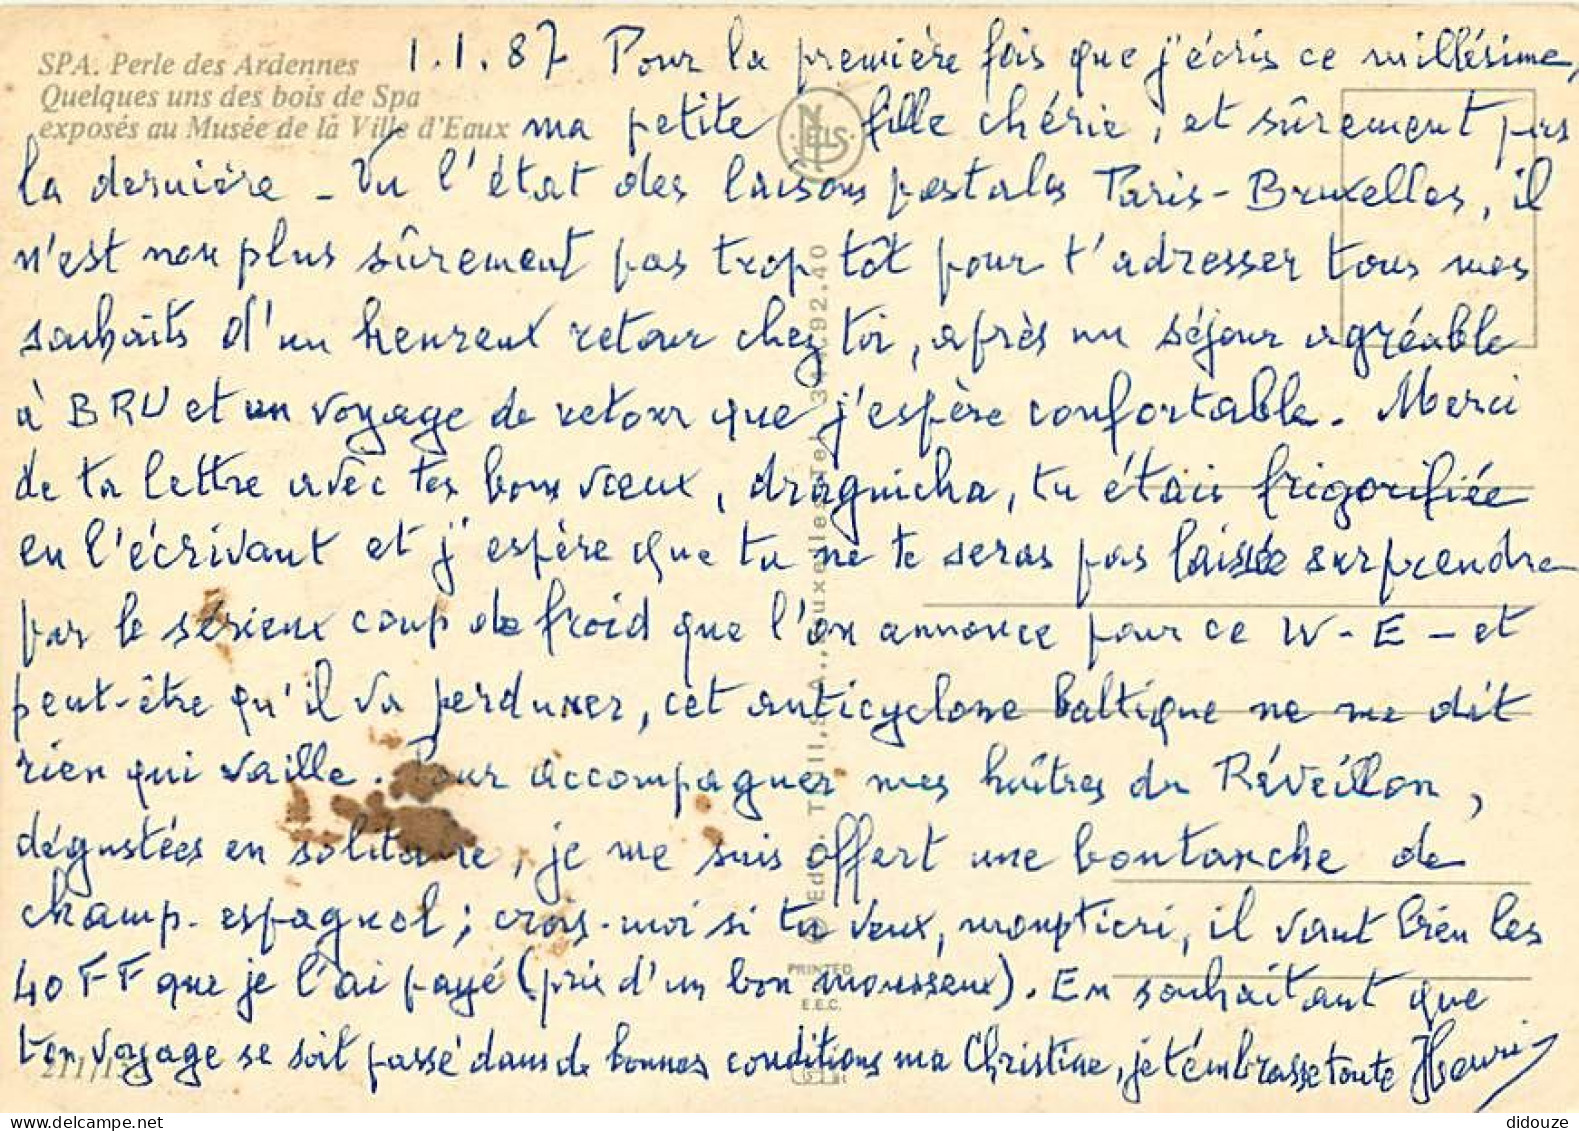 SPA. Perle des Ardennes
Quelques uns des bois de Spa
exposés au Musée de la Ville d'Eaux
1.1.87 Pour la première fois que j'écris ce millésime,
ma petite fille chérie, et sûrement pas
la dernière - Vu l'état des liaisons postales Paris-Bruxelles, il
n'est non plus sûrement pas trop tôt pour t'adresser tous mes
souhaits d'un heureux retour chez toi, après un séjour agréable
à BRU et un voyage de retour que j'espère confortable. Merci
de ta lettre avec tes bons voeux, draguicha, tu étais frigorifiée
en l'écrivant et j'espère que tu ne te seras pas laissée surprendre
par le sérieux coup de froid que l'on annonce pour ce W-E - et
peut-être qu'il va perdurer, cet anticyclone baltique ne me dit
rien qui vaille. Pour accompagner mes huîtres du Réveillon,
dégustées en solitaire, je me suis offert une boutanche de
champ. espagnol ; crois-moi si tu veux, mouptieri, il vaut bien les
40 FF que je l'ai payé (prix d'un bon mousseux). En souhaitant que
ton voyage se soit passé dans de bonnes conditions ma Christine, je t'embrasse toute Henri
PRINTED
E.E.C.
didouze